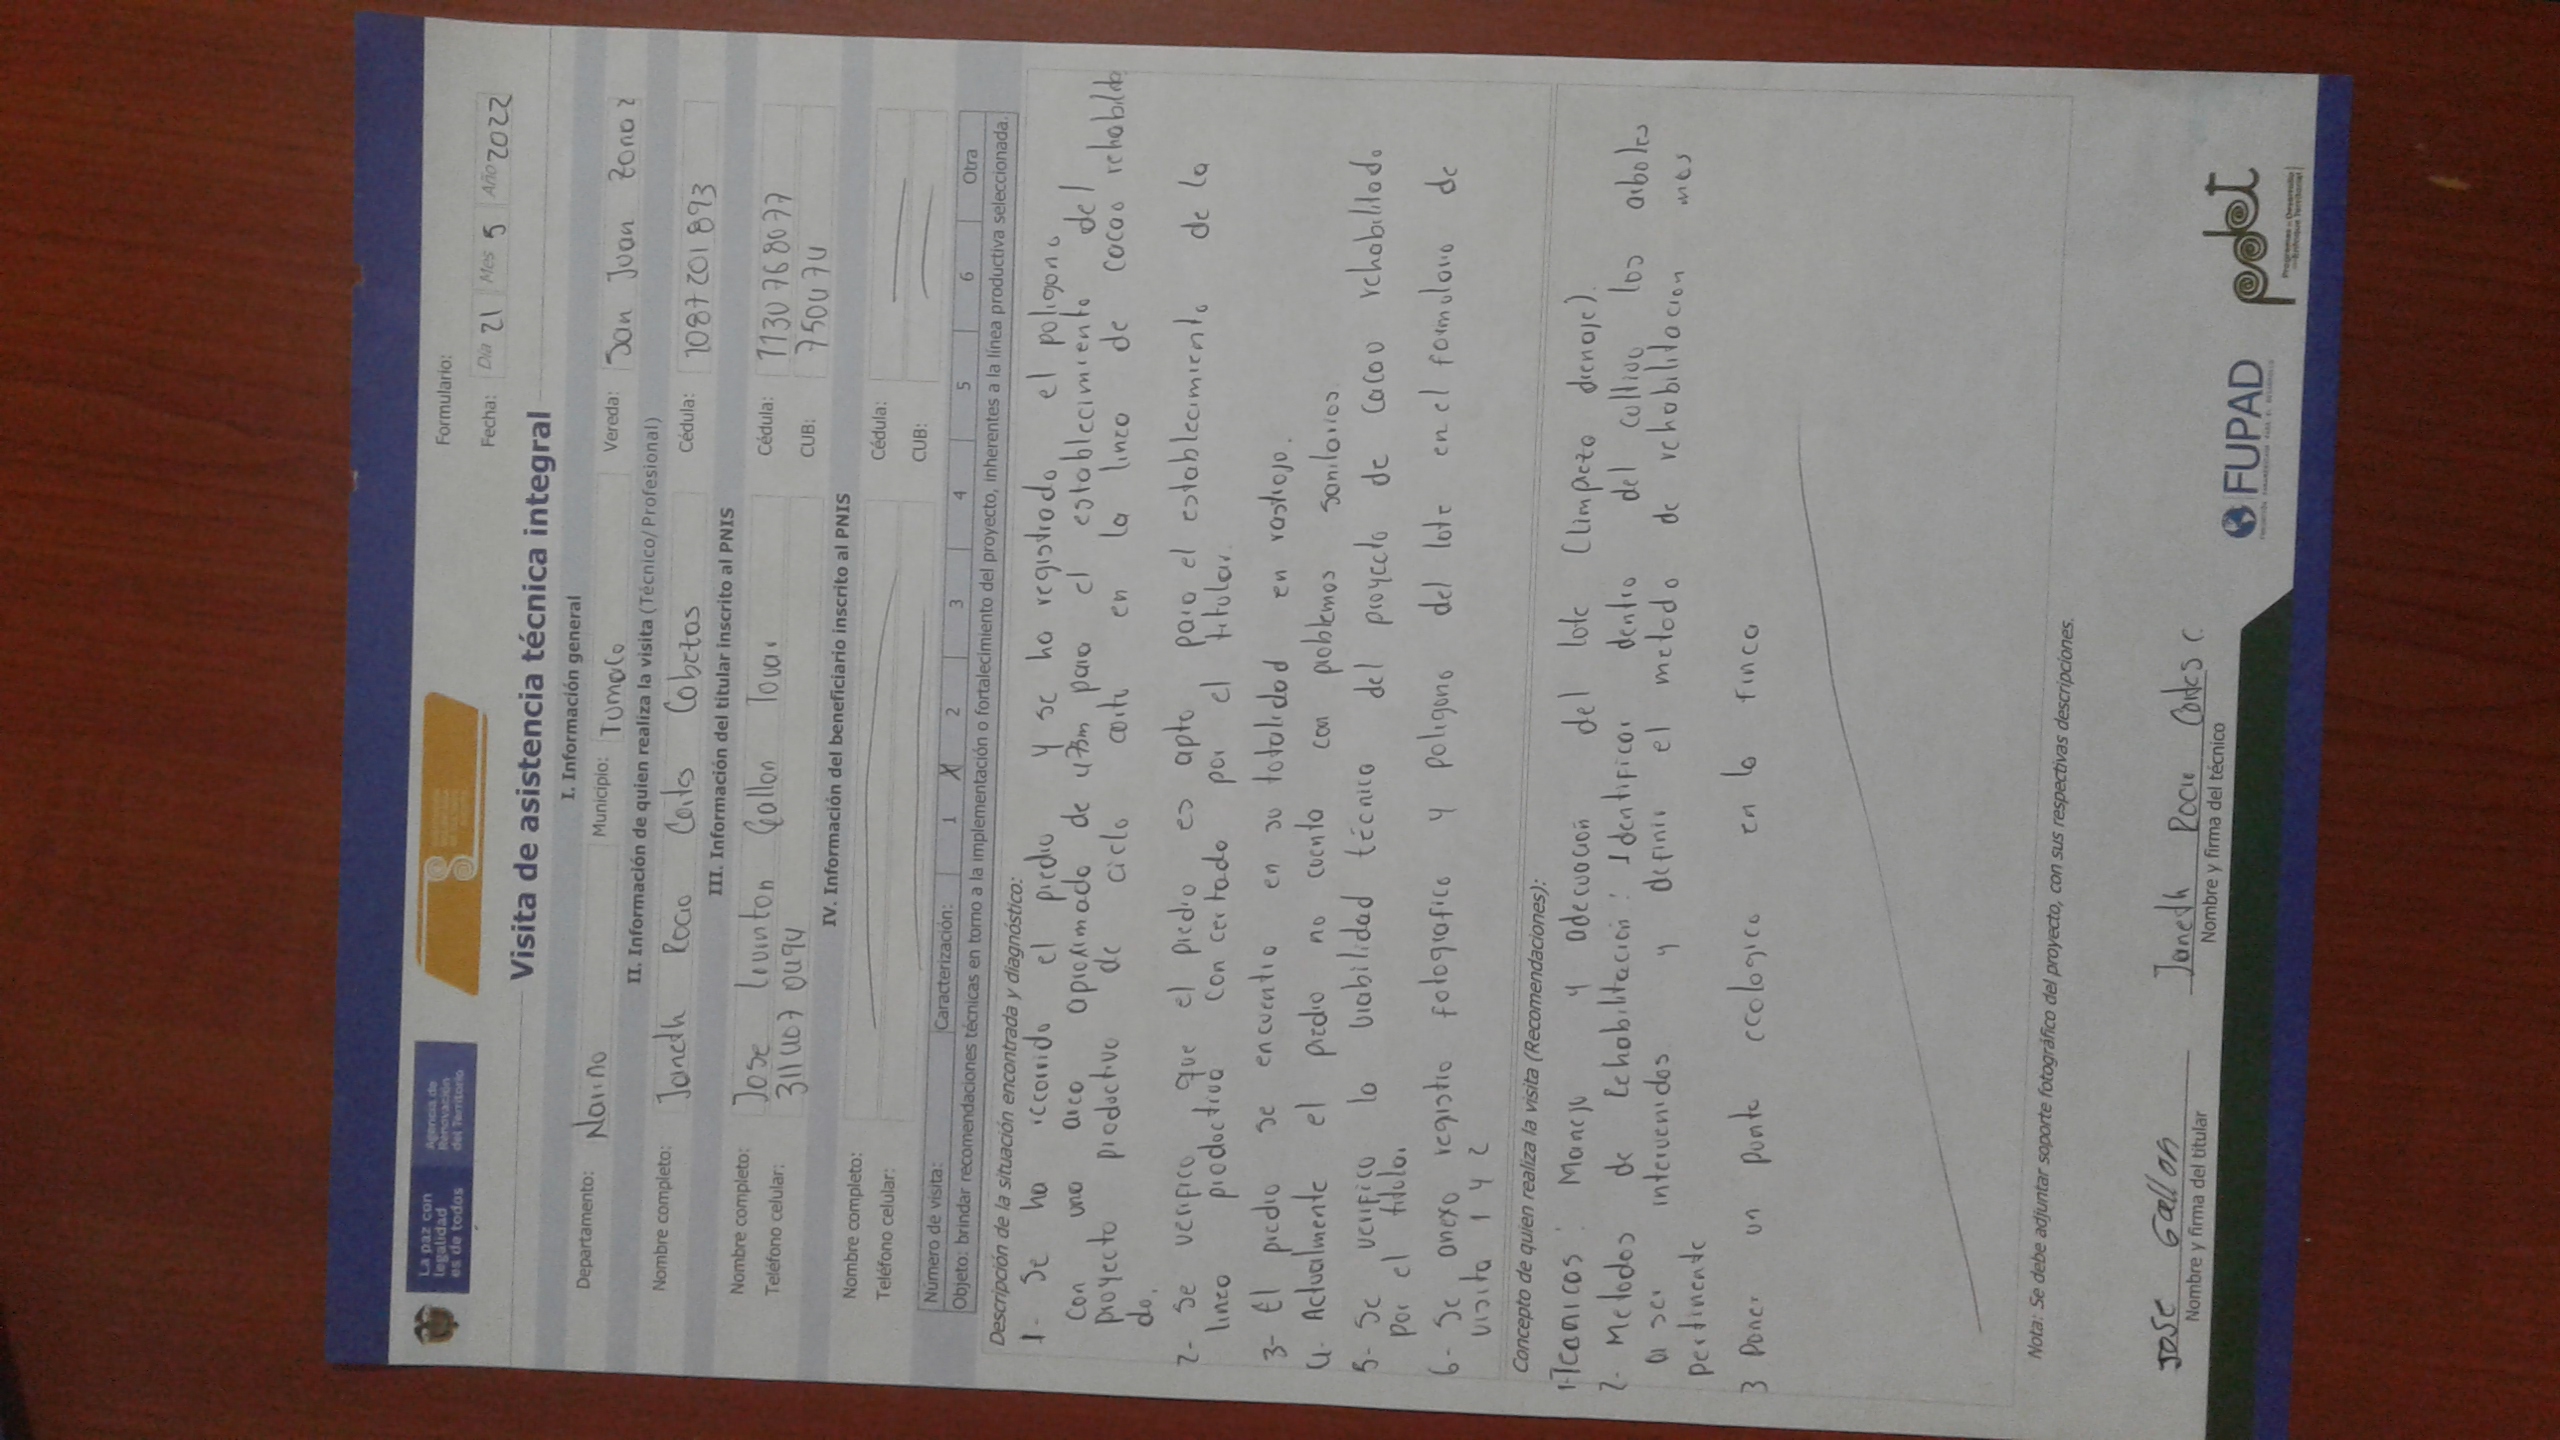 La paz con
legalidad
es de todos
Agencia de
Renovación
del Territorio
Formulario:
Fecha: Día 21 Mes 5 Año 2022
Visita de asistencia técnica integral
I. Información general
Departamento: Nariño Municipio: Tumaco Vereda: San Juan Zona 2
II. Información de quien realiza la visita (Técnico/Profesional)
Nombre completo: Janeth Rocio Cortes Cabezas Cédula: 1087201893
III. Información del titular inscrito al PNIS
Nombre completo: Jose Lovinton Gallon Tovar Cédula: 1130768077
Teléfono celular: 3114070494 CUB: 750474
IV. Información del beneficiario inscrito al PNIS
Nombre completo: Cédula:
Teléfono celular: CUB:
Número de visita: Caracterización: 1 X 2 3 4 5 6 Otra
Objeto: brindar recomendaciones técnicas en torno a la implementación o fortalecimiento del proyecto, inherentes a la línea productiva seleccionada.
Descripción de la situación encontrada y diagnóstico:
1- Se ha recorrido el predio y se ha registrado el poligono
Con una area aproximado de 473m para el establecimiento del
proyecto productivo de ciclo corto en la linea de cacao rehabilita
do.
2- Se verifico que el predio es apto para el establecimiento de la
linea productiva concertado por el titular.
3- El predio se encuentra en su totalidad en rastrojo.
4- Actualmente el predio no cuenta con problemas sanitarios
5- Se verifico la viabilidad técnica del proyecto de cacao rehabilitado
por el titular
6- Se anexo registro fotografico y poligono del lote en el formulario de
visita 1 y 2
Concepto de quien realiza la visita (Recomendaciones):
1-Tecnicos: Manejo y adecuación del lote (limpieza drenaje).
2- Metodos de Rehabilitación: Identificar dentro del cultivo los arboles
a ser intervenidos y definir el metodo de rehabilitacion mes
pertinente
3 Poner un punto ecologico en la finca
Nota: Se debe adjuntar soporte fotográfico del proyecto, con sus respectivas descripciones.
Jose Gallon
Nombre y firma del titular
Janeth Rocio Cortes C.
Nombre y firma del técnico
FUPAD
pdet